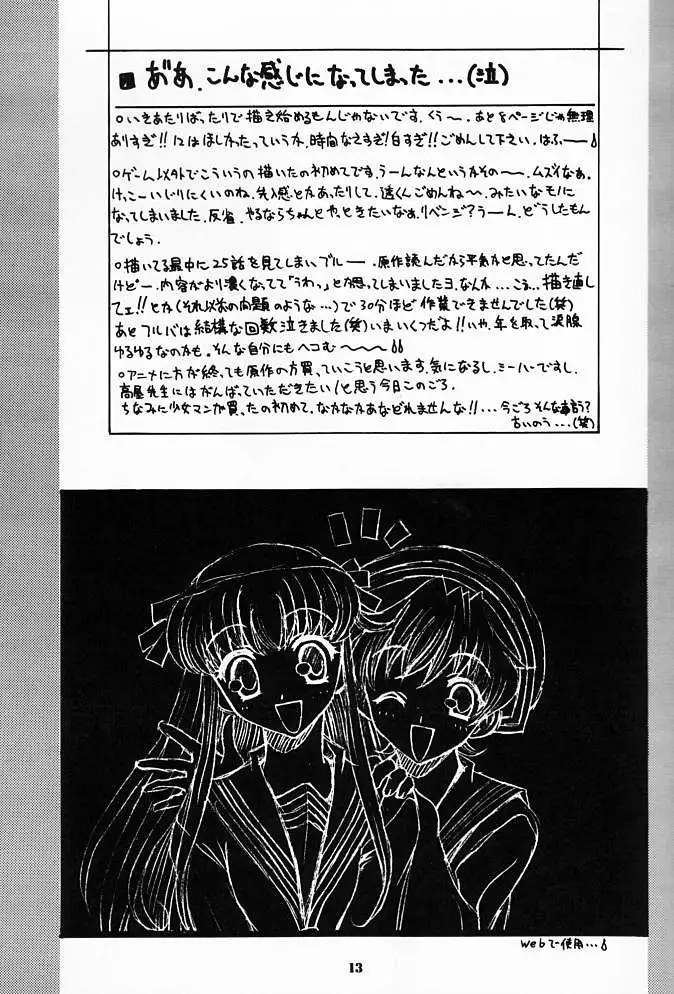 ■ あ゛あ、こんな感じになってしまった...(泣)
○いきあたりばったりで描き始めるもんじゃないです。くぅ〜。あと8ページじゃ無理
ありすぎ!!12はほしかったっていうか、時間なさすぎ!白すぎ!!ごめんして下さい。はふ——
○ゲーム以外でこういうの描いたの初めてです。うーんなんというかその〜、ムズイなぁ。
けっこーいじりにくいのね。先入感とかあったりして。透くんごめんね〜。みたいなモノに
なってしまいました。反省。やるならちゃんとやっときたいなぁ。リベンジ?うーん、どうしたもん
でしょう。
○描いてる最中に25話を見てしまいブルー——。原作読んだから平気かと思ってたんだ
けどー、内容がより濃くなってて「うわっ」とか思ってしまいましたヨ。なんか...こう...描き直し
てェ!!とか(それ以前の問題のような...)で30分ほど作業できませんでした(笑)
あとフルバは結構な回数泣きました(笑)いまいくつだよ!!いや、年を取って涙腺
ゆるゆるなのかも。そんな自分にもヘコむ〜
○アニメに方が終っても原作の方買っていこうと思います。気になるし、ミーハーですし。
高屋先生にはがんばっていただきたい!と思う今日このごろ。
ちなみに少女マンガ買ったの初めて。なかなかあなどれませんな!!...今ごろそんな事言う?
ちいのう...(笑)
webで使用...
13